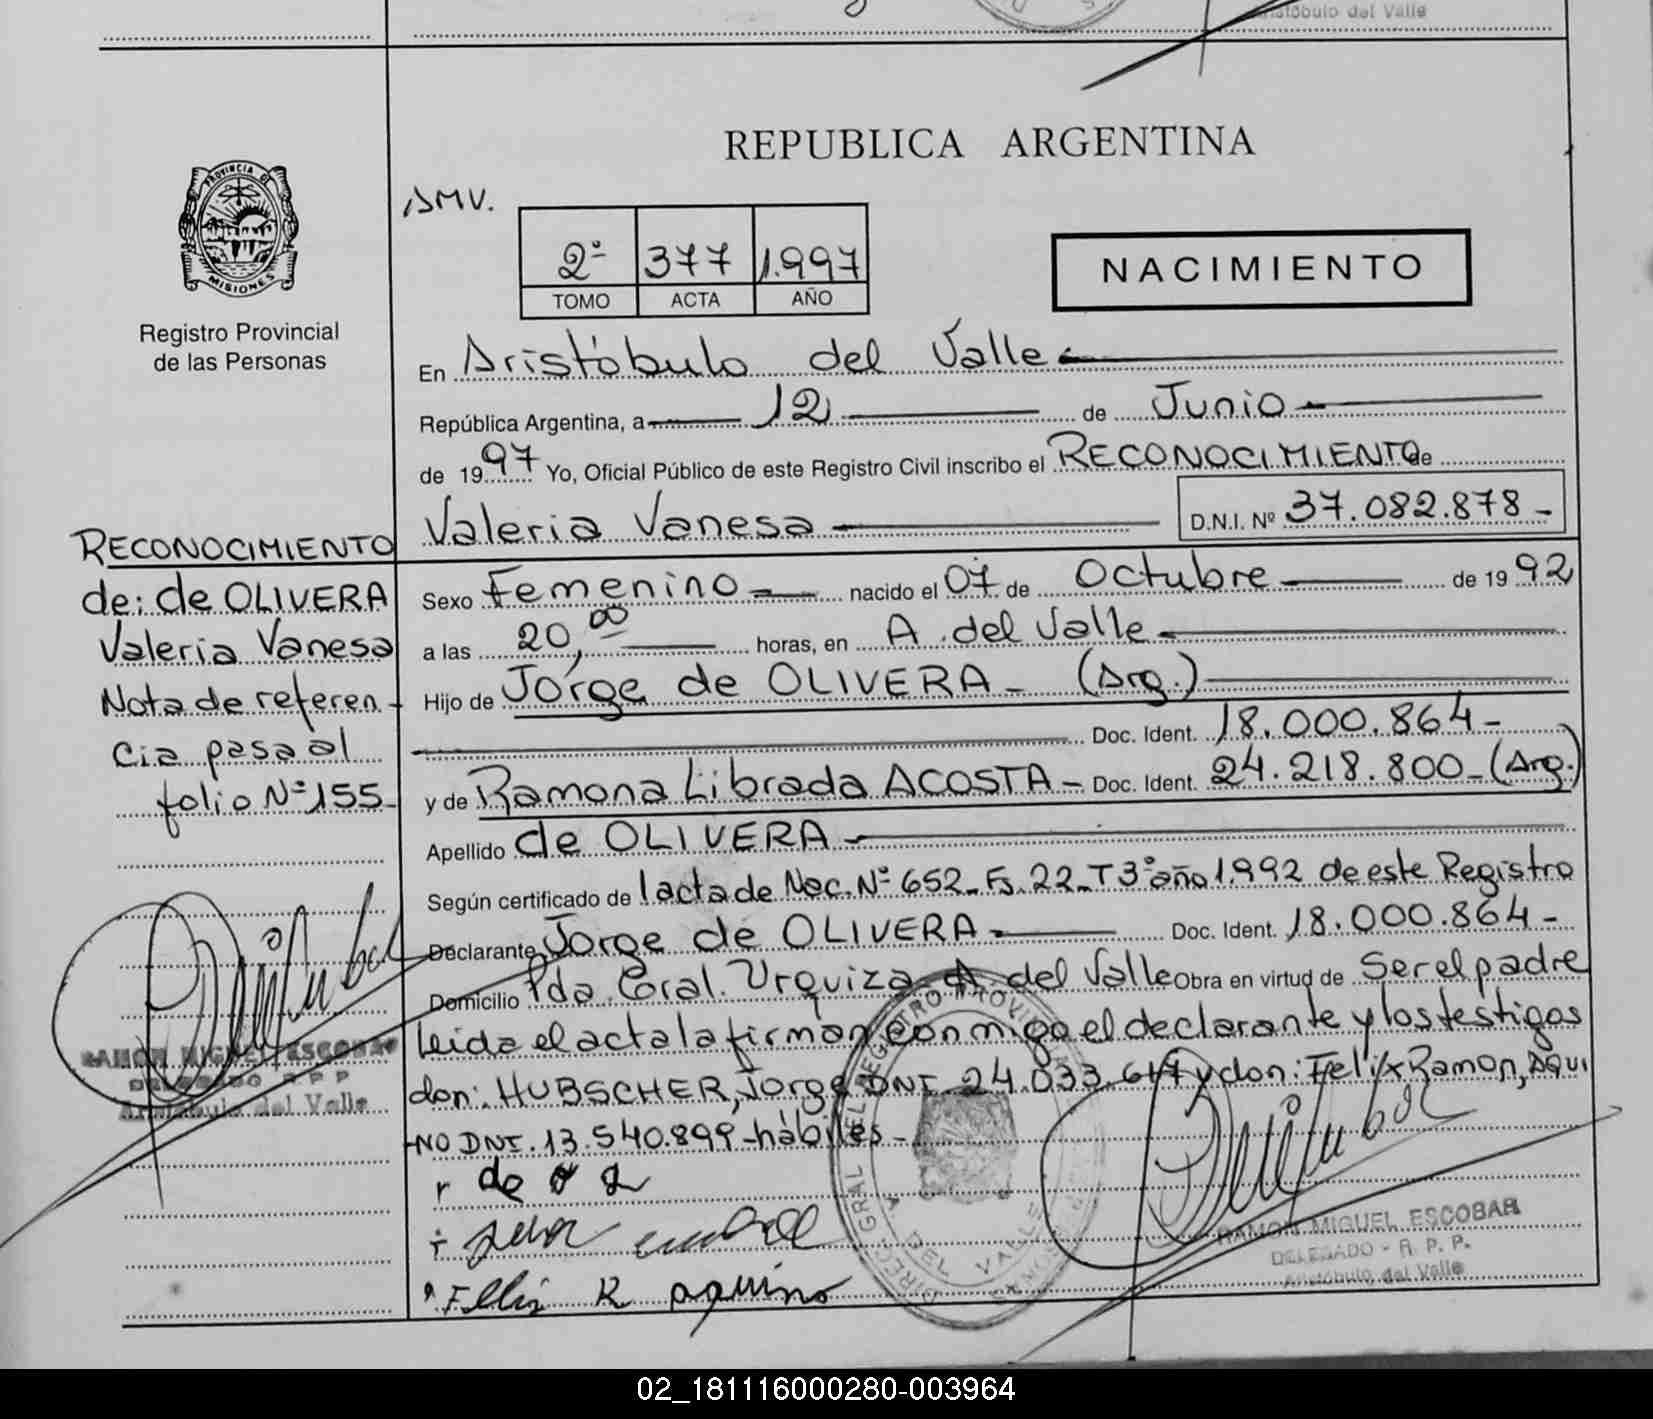 Aristóbulo del Valle
REPUBLICA ARGENTINA
PROVINCIA DE
MISIONES
Registro Provincial
de las Personas
AMV.
2º 377 1.997
TOMO ACTA AÑO
NACIMIENTO
En Aristóbulo del Valle
República Argentina, a 12 de Junio
de 1997 Yo, Oficial Público de este Registro Civil inscribo el RECONOCIMIENTO de
Valeria Vanesa D.N.I. Nº 37.082.878-
RECONOCIMIENTO
de: de OLIVERA
Valeria Vanesa
Nota de referen-
cia pasa al
folio Nº 155-
RAMON MIGUEL ESCOBAR
DELEGADO R.P.P
Aristóbulo del Valle
Sexo Femenino nacido el 07 de Octubre de 1992
a las 20,00 horas, en A. del Valle
Hijo de Jorge de OLIVERA- (Arg.)
Doc. Ident. 18.000.864-
y de Ramona Librada ACOSTA- Doc. Ident. 24.218.800-(Arg.)
Apellido de OLIVERA
Según certificado de l acta de Nac. Nº 652-Fs.22-T3º año 1.992 de este Registro
Declarante Jorge de OLIVERA Doc. Ident. 18.000.864-
Domicilio Pda. Coral. Urquiza A. del Valle Obra en virtud de Ser el padre
Leida el acta la firman conmigo el declarante y los testigos
don: HUBSCHER, Jorge DNI 24.033.617 y don: Felix Ramon, AQUI
-NO DNI. 13.540.899-hábiles-
Felix R aquino
DIREC. GRAL DEL REGISTRO PROVINCIAL
A. DEL VALLE
MISIONES
RAMON MIGUEL ESCOBAR
DELEGADO - R. P. P.
Aristóbulo del Valle
02_181116000280-003964